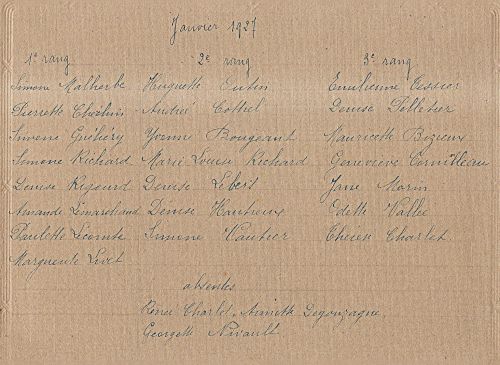 Janvier 1927
1e rang 2e rang 3e rang
Simone Malherbe Huguette Emilienne Tessier
Pierrette Andrée Cottel Denise Pelletier
Simone Yvonne Bougeant Mauricette Bizieux
Simone Richard Marie Louise Richard Geneviève Cornilleau
Denise Rigaud Denise Lebert Jane Morin
Amande Limarchand Denise Hautreux Odette Vallée
Paulette Lecomte Simone Vautier Charlet
Marguerite Livet
absentes
Renée Charlet, Aimée Degonzague,
Georgette Nivault